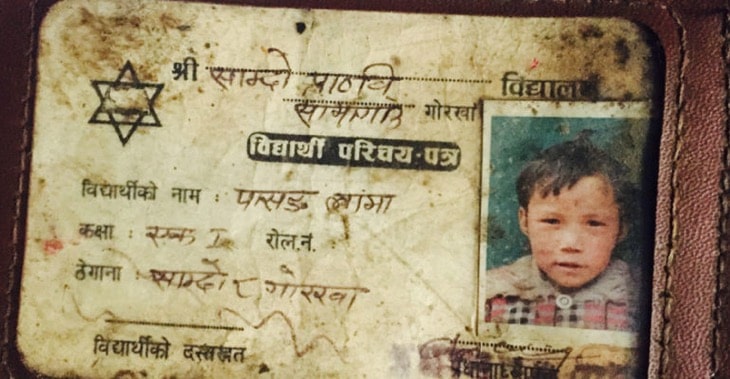 श्री साम्दो प्राठवि विद्यालय
सामागाउ गोरखा
विद्यार्थी परिचय-पत्र
विद्यार्थीको नाम : पासङ लामा
कक्षा : एक I रोल.नं. :
ठेगाना : साम्दो ८ गोरखा
विद्यार्थीको दस्तखत